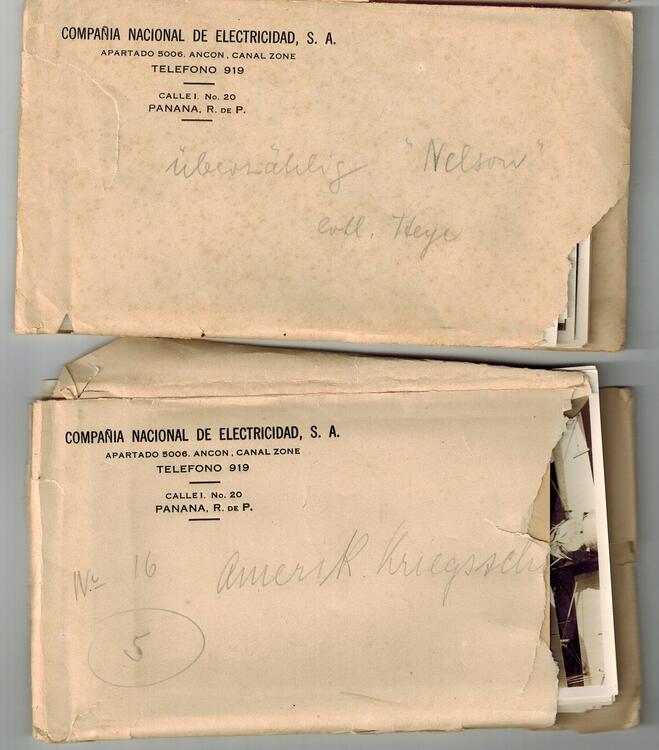 COMPAÑIA NACIONAL DE ELECTRICIDAD, S. A.
APARTADO 5006. ANCON, CANAL ZONE
TELEFONO 919
CALLE I. No. 20
PANANA, R. DE P.
überzählig "Nelson"
coll. Heye
COMPAÑIA NACIONAL DE ELECTRICIDAD, S. A.
APARTADO 5006. ANCON, CANAL ZONE
TELEFONO 919
CALLE I. No. 20
PANANA, R. DE P.
No 16 Amerik. Kriegssch
5